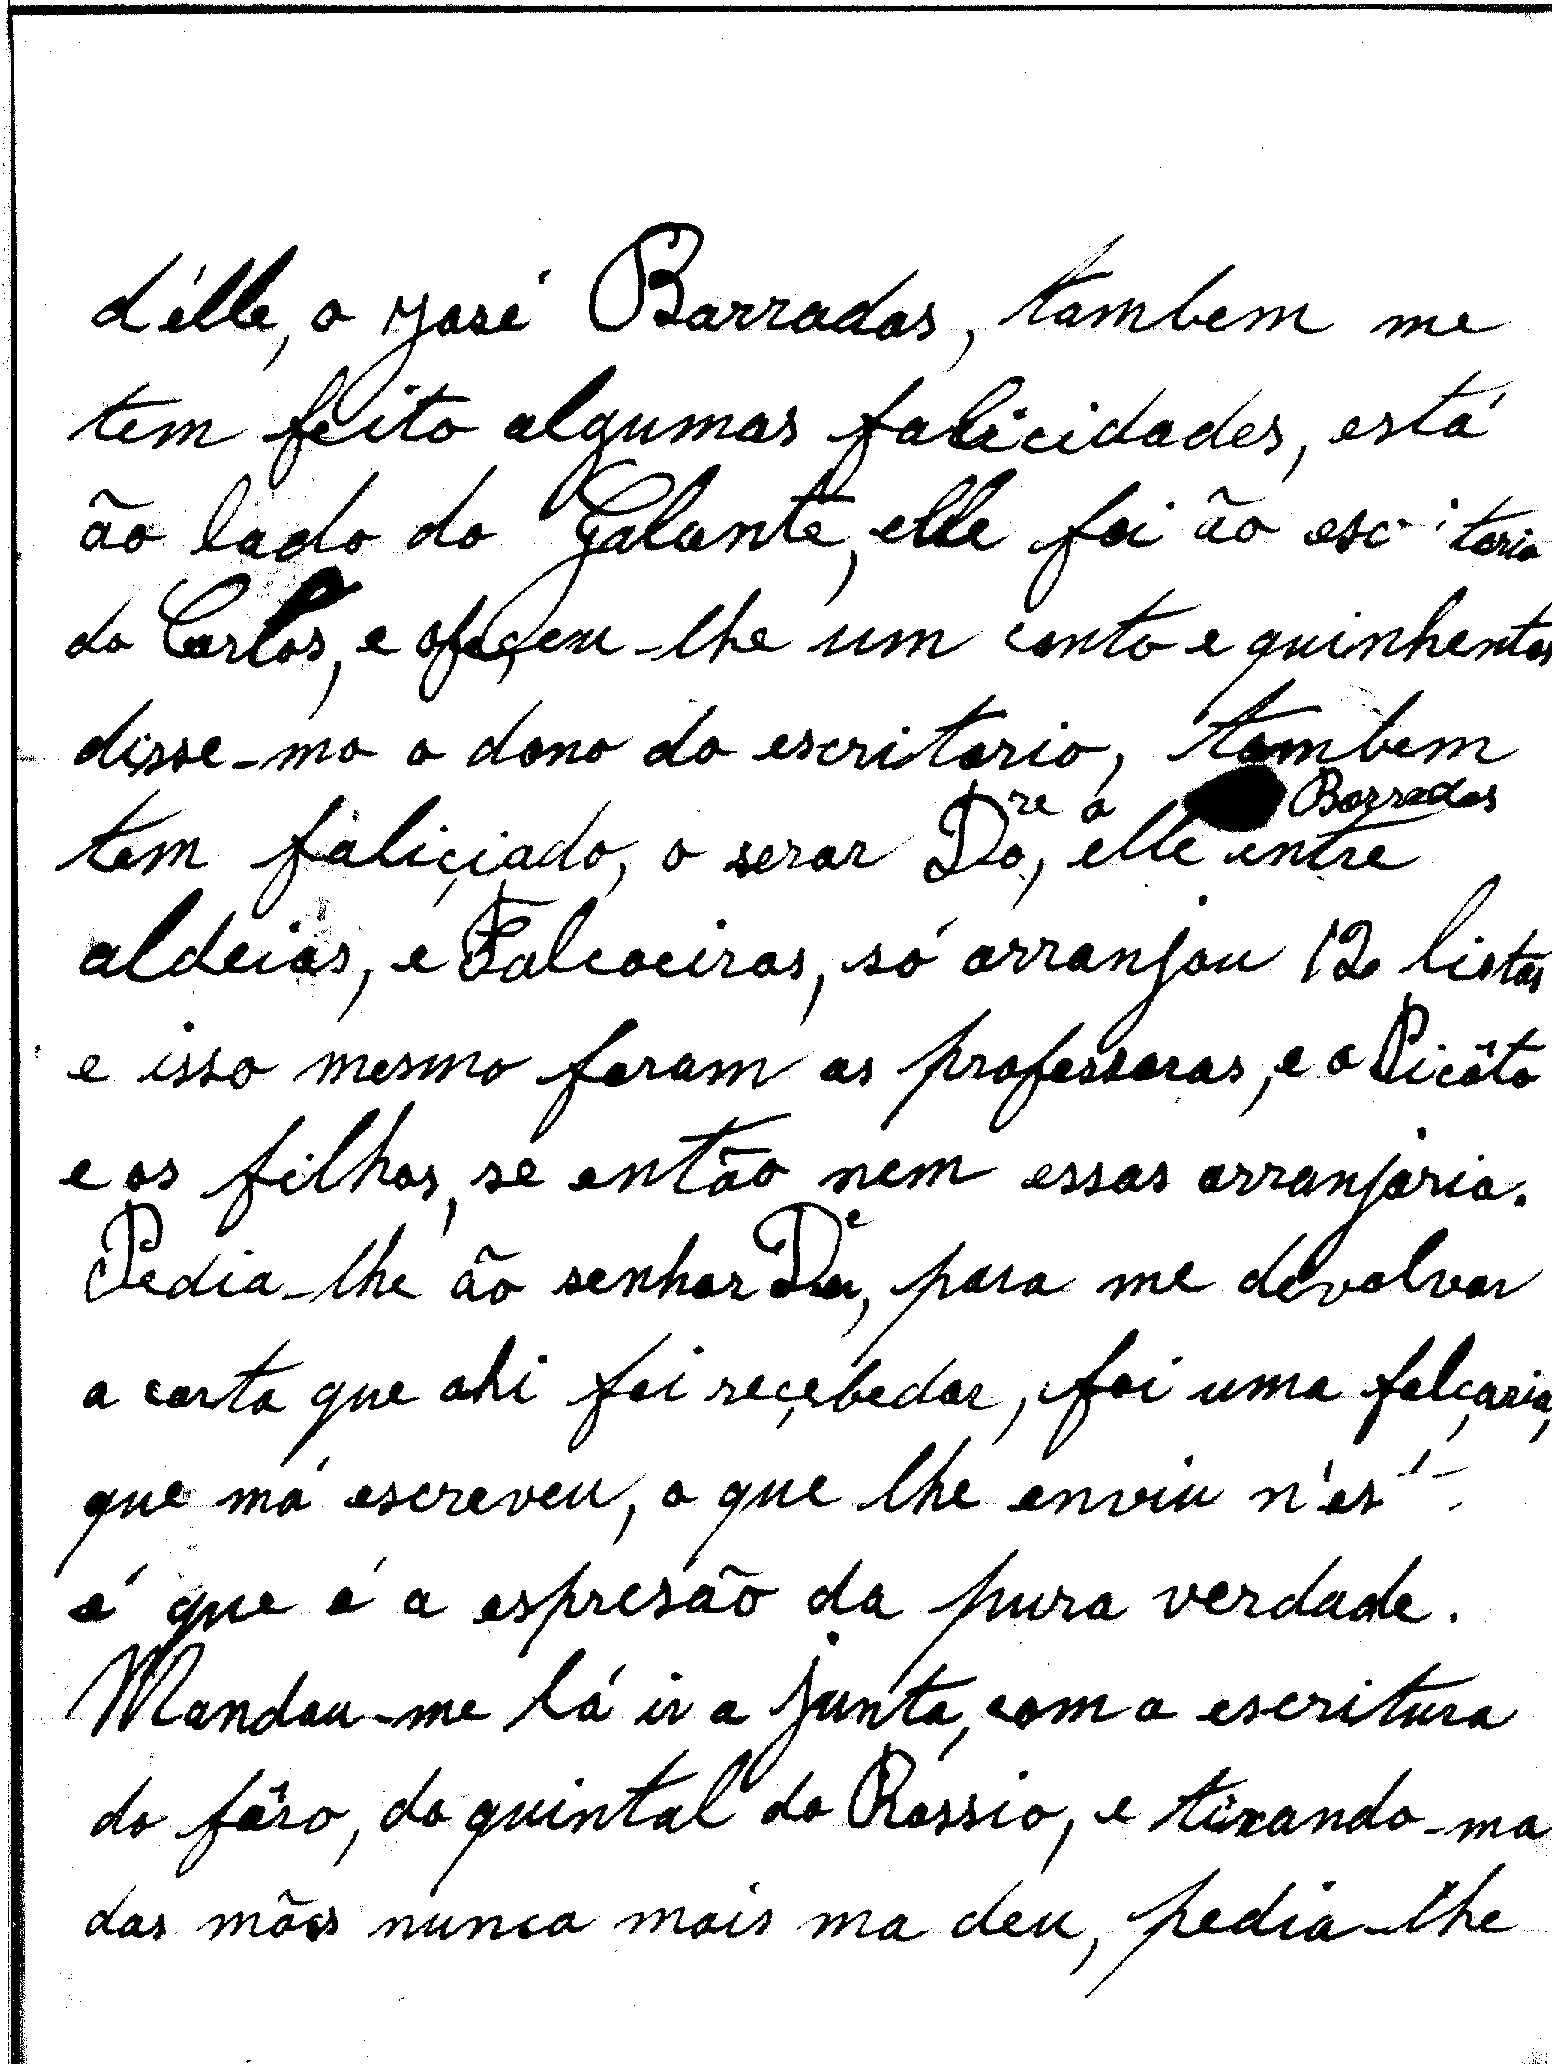 d'élle, o José Barradas, tambem me
tem feito algumas falicidades, está
ão lado do Galante, elle foi ão esc itorio
do Carlos, e ofreçeu-lhe um conto e quinhentos
disse-mo o dono do escritorio, tambem
re o Barradas
tem faliçiado, o serar Do, elle entre
aldeias, e Falcoeiras, só arranjou 12 listas
e isso mesmo foram as professoras, e o Picôto
e os filhos, se então nem essas arranjaria.
Pedia-lhe ão senhor para me devolver
a carta que ahi foi reçebedar, foi uma falçaria,
que má escreveu, o que lhe enviu
é que é a espresão da pura verdade.
Mandou-me lá ir a junta, com a escritura
do fôro, do quintal do Rossio, e tirando-ma
das mãos nunca mais ma deu, pedia-lhe